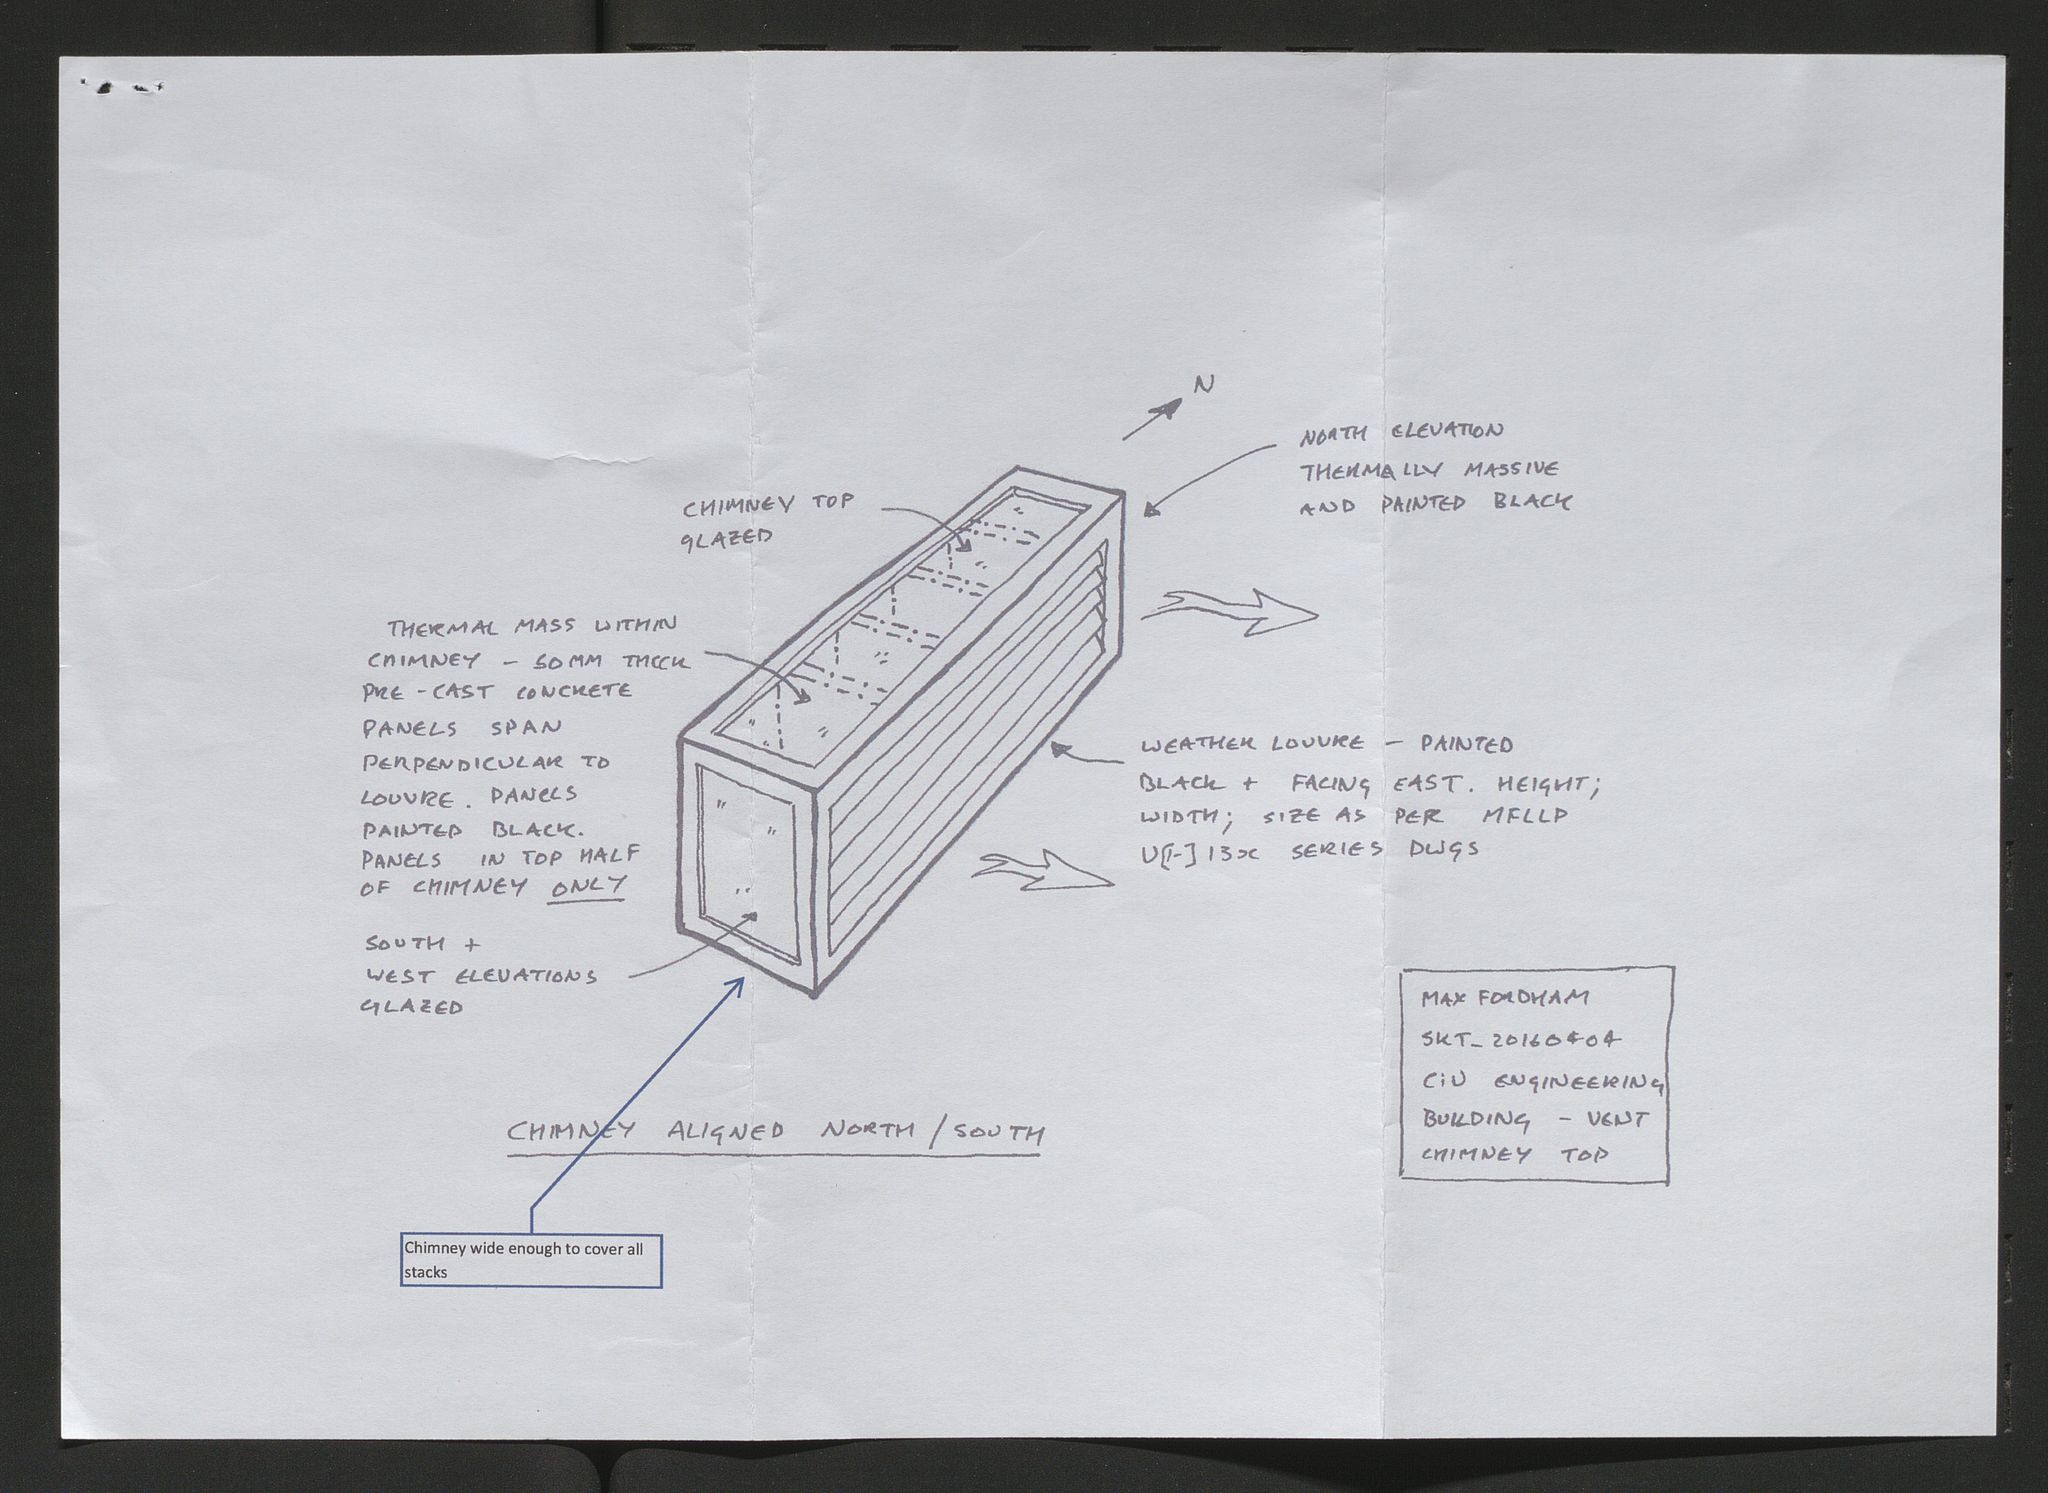 N
NORTH ELEVATION
THERMALLY MASSIVE
AND PAINTED BLACK
CHIMNEY TOP
GLAZED
THERMAL MASS WITHIN
CHIMNEY - 50MM THICK
PRE-CAST CONCRETE
PANELS SPAN
PERPENDICULAR TO
LOUVRE. PANELS
PAINTED BLACK.
PANELS IN TOP HALF
OF CHIMNEY ONLY
WEATHER LOUVRE - PAINTED
BLACK + FACING EAST. HEIGHT;
WIDTH; SIZE AS PER MFLLP
U[-]13x SERIES DWGS
SOUTH +
WEST ELEVATIONS
GLAZED
MAX FORDHAM
SKT_20160404
CIU ENGINEERING
BUILDING - VENT
CHIMNEY TOP
CHIMNEY ALIGNED NORTH/SOUTH
Chimney wide enough to cover all
stacks